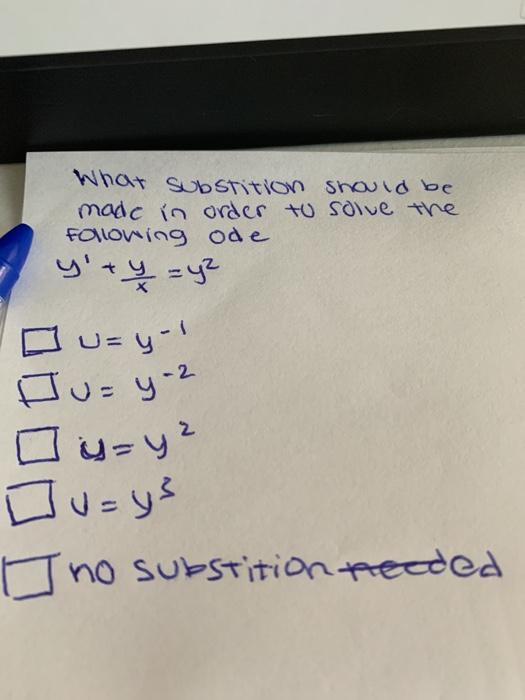 What substition should be
made in order to solve the
following ode
y' + y/x = y²
U = y⁻¹
U = y⁻²
y = y²
U = y³
no substition needed